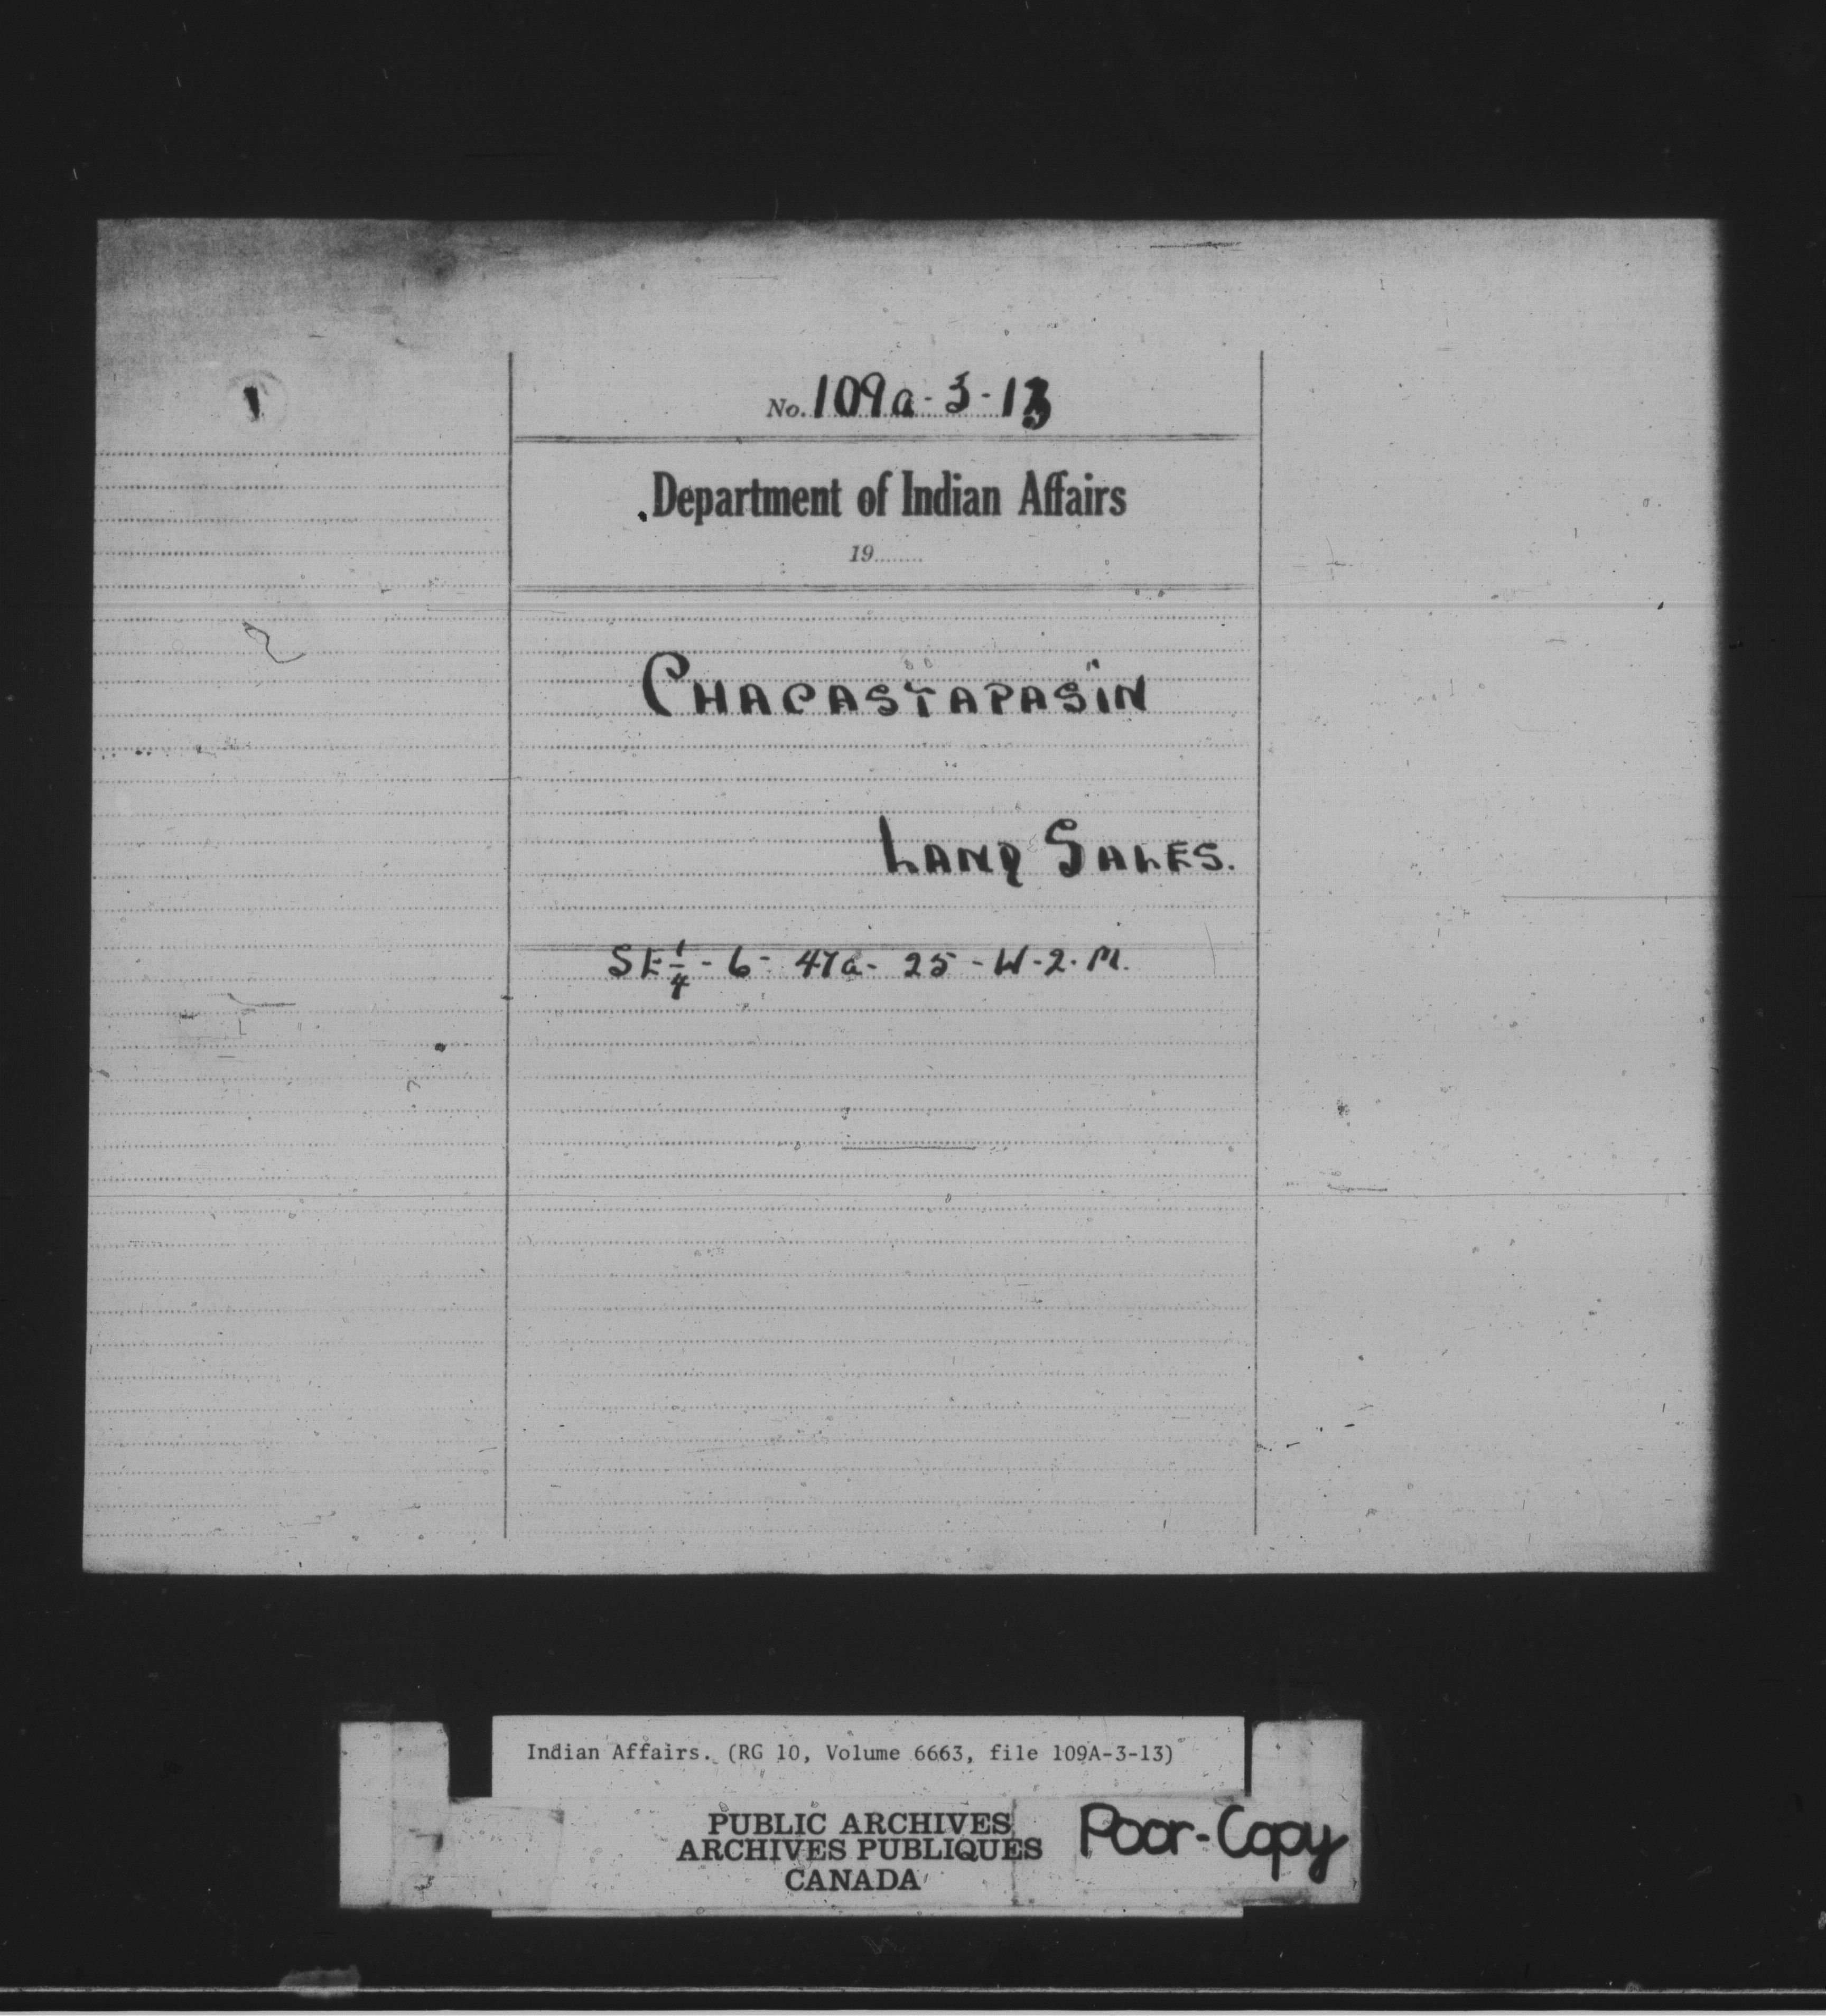 No. 109a-3-13
Department of Indian Affairs
19........
CHACASTAPASIN
LAND SALES.
SE 1/4 - 6 - 47a - 25 - W - 2. M.
Indian Affairs. (RG 10, Volume 6663, file 109A-3-13)
PUBLIC ARCHIVES
ARCHIVES PUBLIQUES
CANADA
Poor-Copy